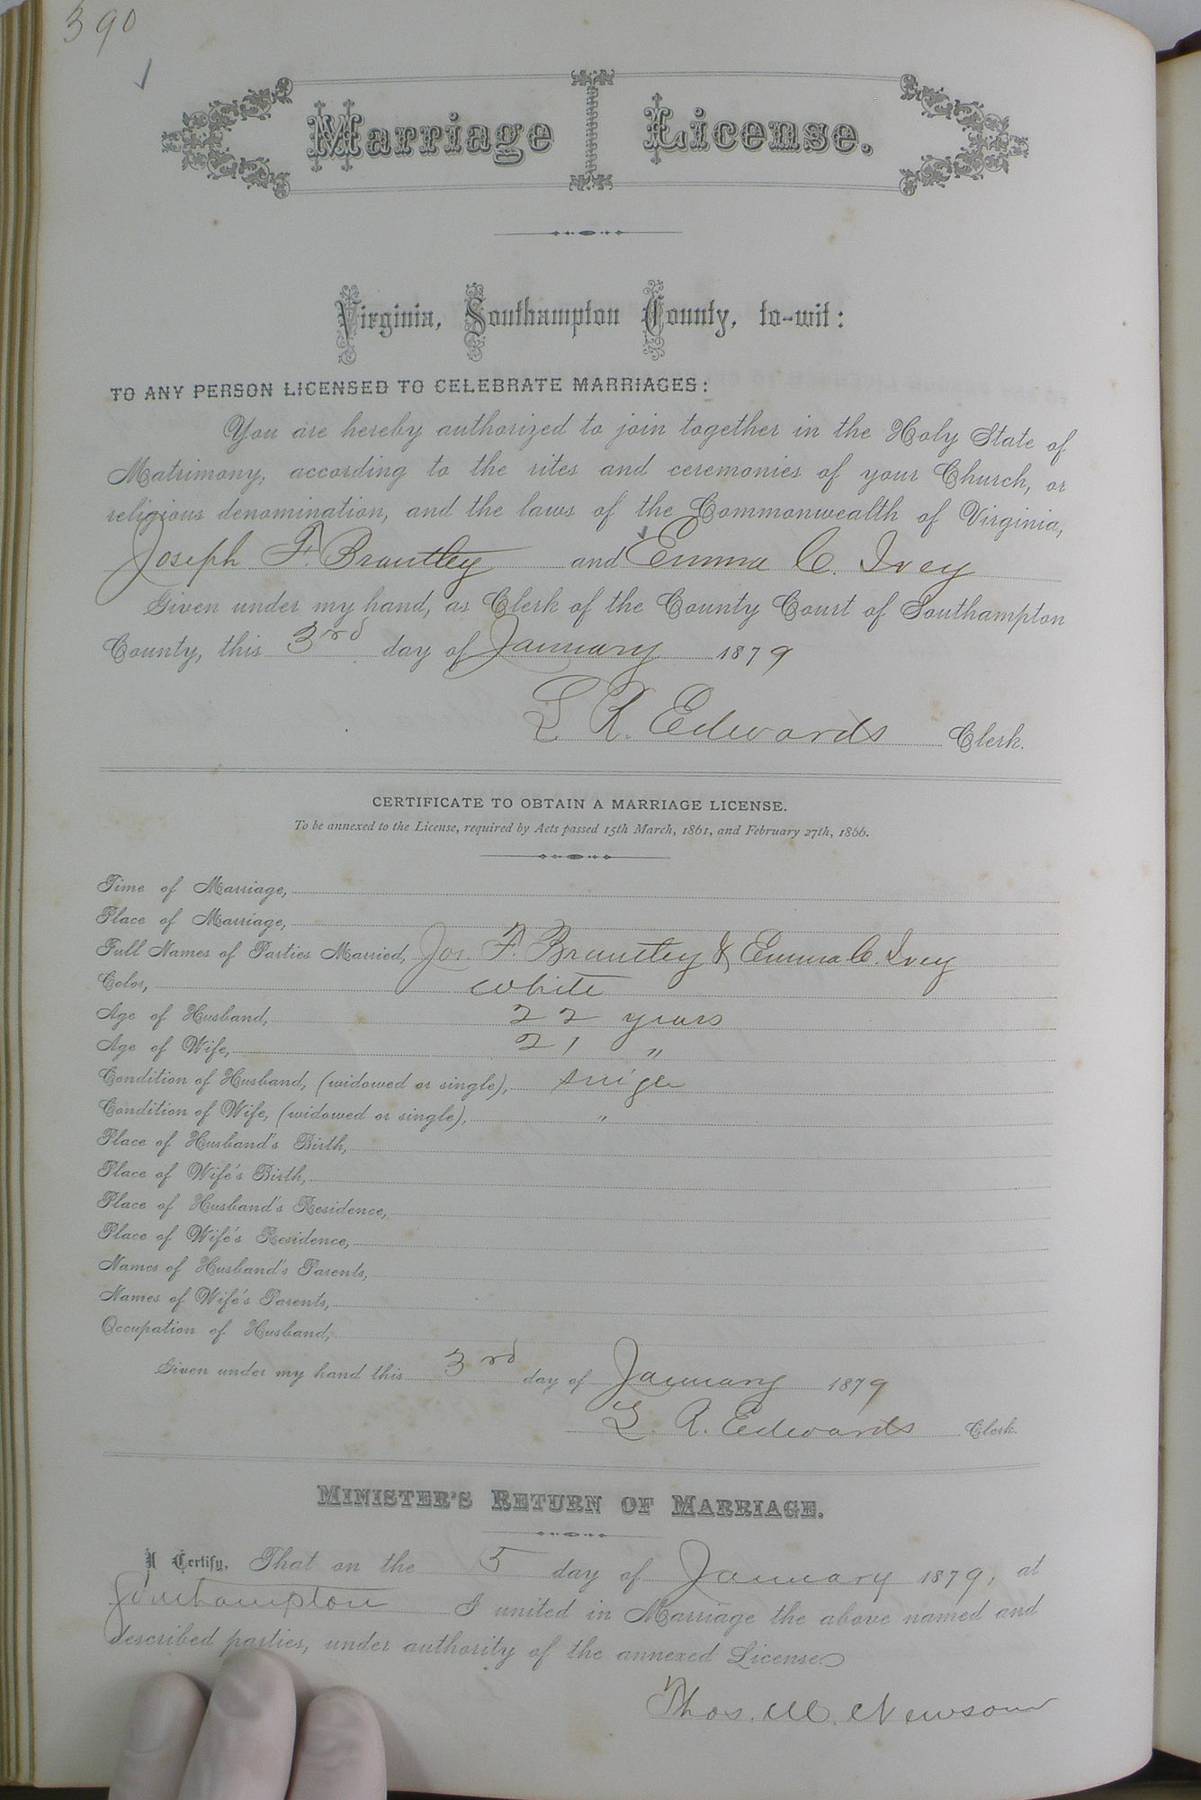 390
Marriage License.
Virginia, Southampton County, to-wit:
TO ANY PERSON LICENSED TO CELEBRATE MARRIAGES:
You are hereby authorized to join together in the Holy State of
Matrimony, according to the rites and ceremonies of your Church, or
religious denomination, and the laws of the Commonwealth of Virginia,
Joseph F. Brantley and Emma C. Ivey
Given under my hand, as Clerk of the County Court of Southampton
County, this 3rd day of January 1879
L R. Edwards Clerk.
CERTIFICATE TO OBTAIN A MARRIAGE LICENSE.
To be annexed to the License, required by Acts passed 15th March, 1861, and February 27th, 1866.
Time of Marriage,
Place of Marriage,
Full Names of Parties Married, Jos. F. Brantley & Emma C. Ivey
Color, White
Age of Husband, 22 years
Age of Wife, 21 "
Condition of Husband, (widowed or single), single
Condition of Wife, (widowed or single), "
Place of Husband's Birth,
Place of Wife's Birth,
Place of Husband's Residence,
Place of Wife's Residence,
Names of Husband's Parents,
Names of Wife's Parents,
Occupation of Husband,
Given under my hand this 3rd day of January 1879
L. R. Edwards Clerk.
MINISTER'S RETURN OF MARRIAGE.
I Certify, That on the 5 day of January 1879, at
Southampton I united in Marriage the above named and
described parties, under authority of the annexed License
Thos. W. Newsom